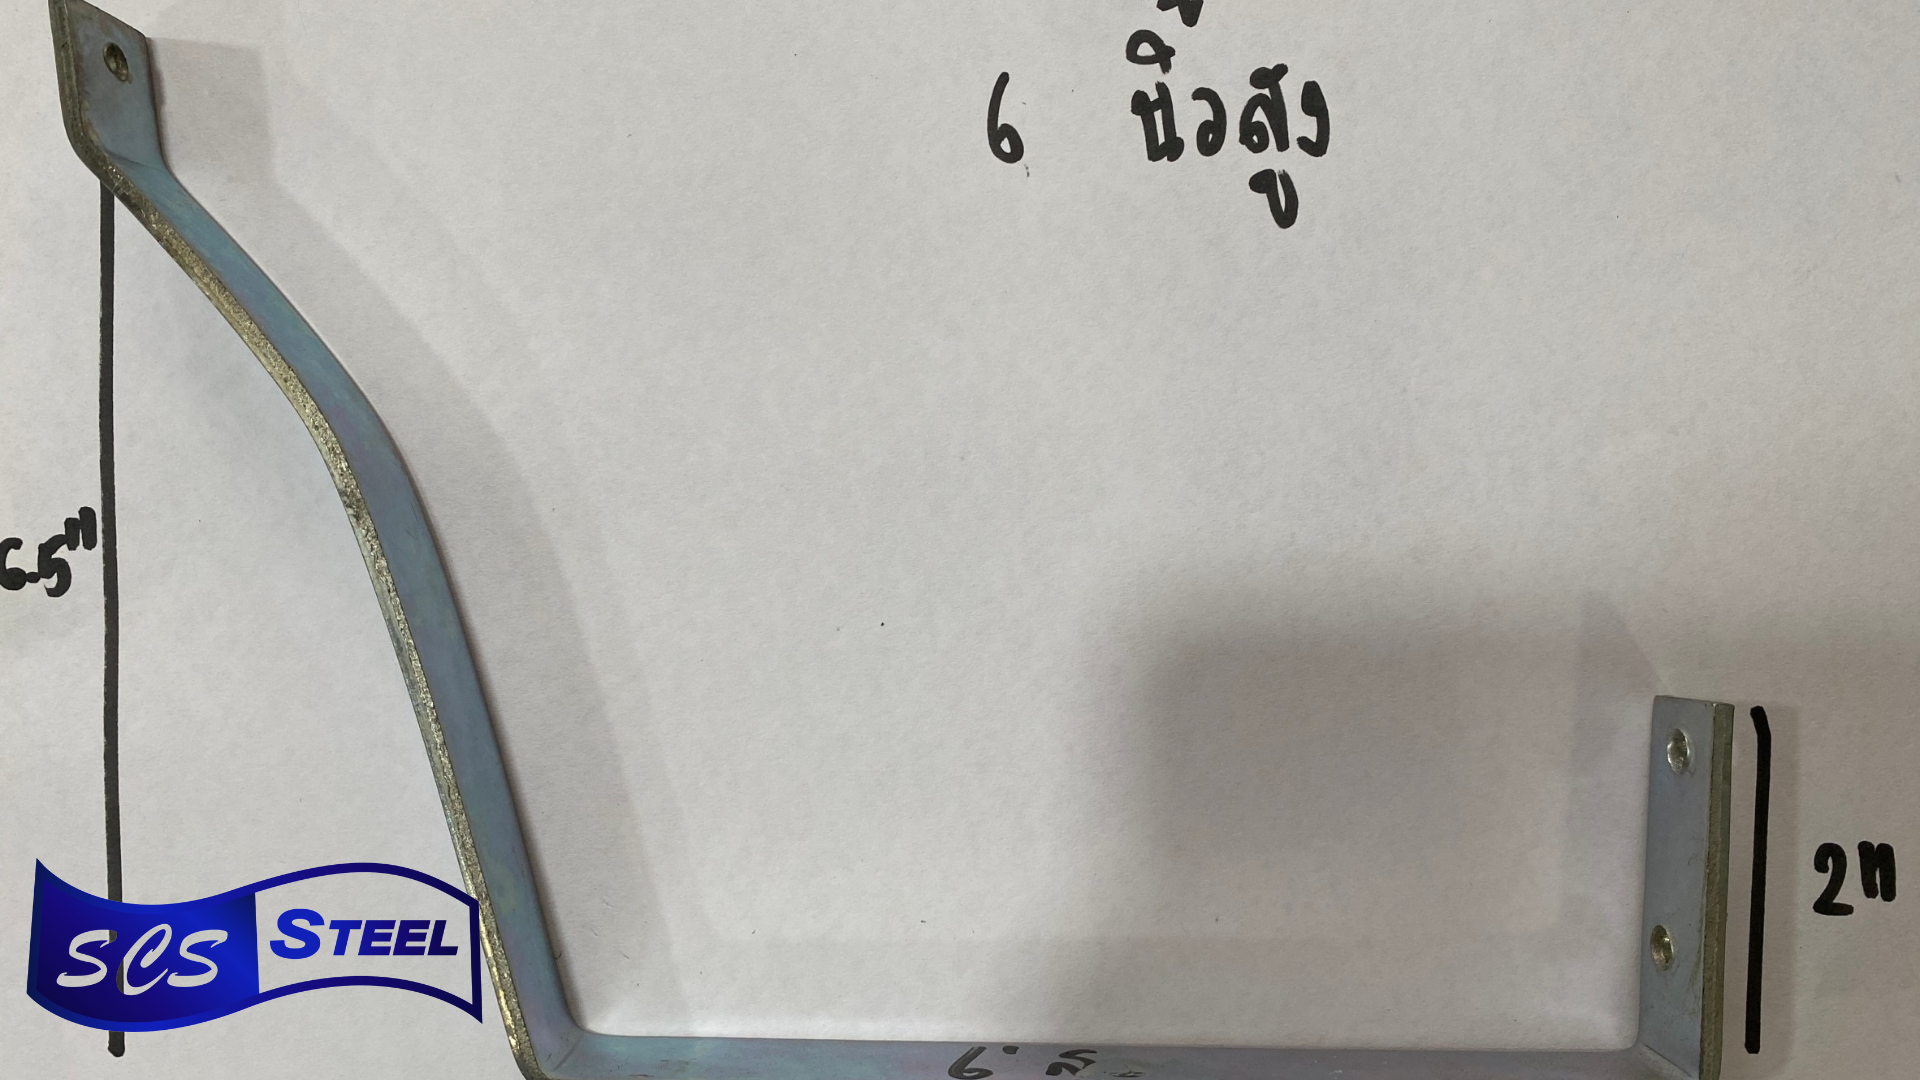 6 นิ้วสูง
6.5"
2"
SCS STEEL
6" ส